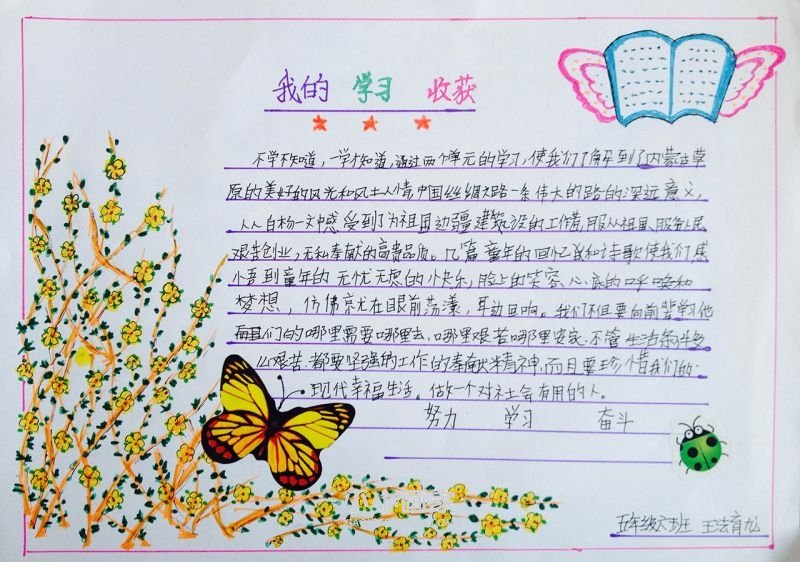 我的 学习 收获
不学不知道，一学才知道，通过两个单元的学习，使我们了解到了内蒙古草
原的美好的风光和风土人情，中国丝绸之路一条伟大的路的深远意义，
从白杨一文中感受到了为祖国边疆建筑设的工作者，服从祖国、服务人民
艰苦创业，无私奉献的高贵品质。几篇童年的回忆说和诗歌使我们感
悟到童年的无忧无虑的小快乐，脸上的笑容、心底的呼唤和
梦想，仿佛京尤在眼前荡漾，耳边回响。我们不但要向前辈学习他
们的哪里需要哪里去，哪里艰苦哪里安家，不管生活条件多
么艰苦，都要坚强的工作的奉献精神，而且要珍惜我们的
现代幸福生活。做一个对社会有用的人。
努力 学习 奋斗
五年级六班 王法育龙